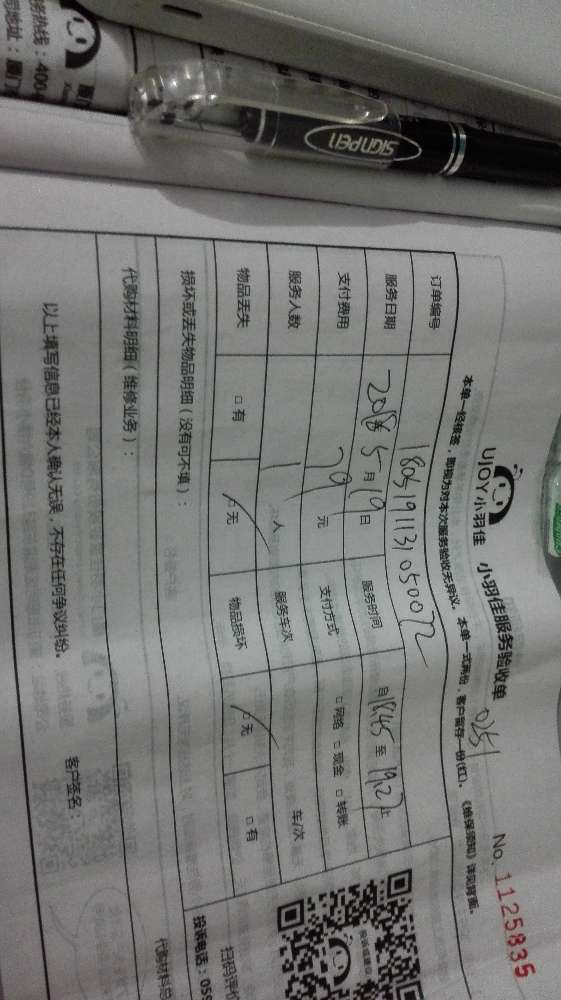 UJOY小羽佳 小羽佳服务验收单
No. 1125835
本单一经核签，即视为对本次服务验收无异议。本单一式两份，客户留存一份(红)。《维保须知》详见背面。
订单编号 1805191131050072
服务日期 2018年5月19日 服务时间 自18:45至19:27止
支付费用 79元 支付方式 □网络 □现金 □转账
服务人数 1人 服务车次 车/次
物品丢失 □有 □无 物品损坏 □无 □有
损坏或丢失物品明细（没有可不填）：
代购材料明细（维修业务）：
以上填写信息已经本人确认无误，不存在任何争议纠纷。
客户签名：
投诉电话：059
SIGNPEN